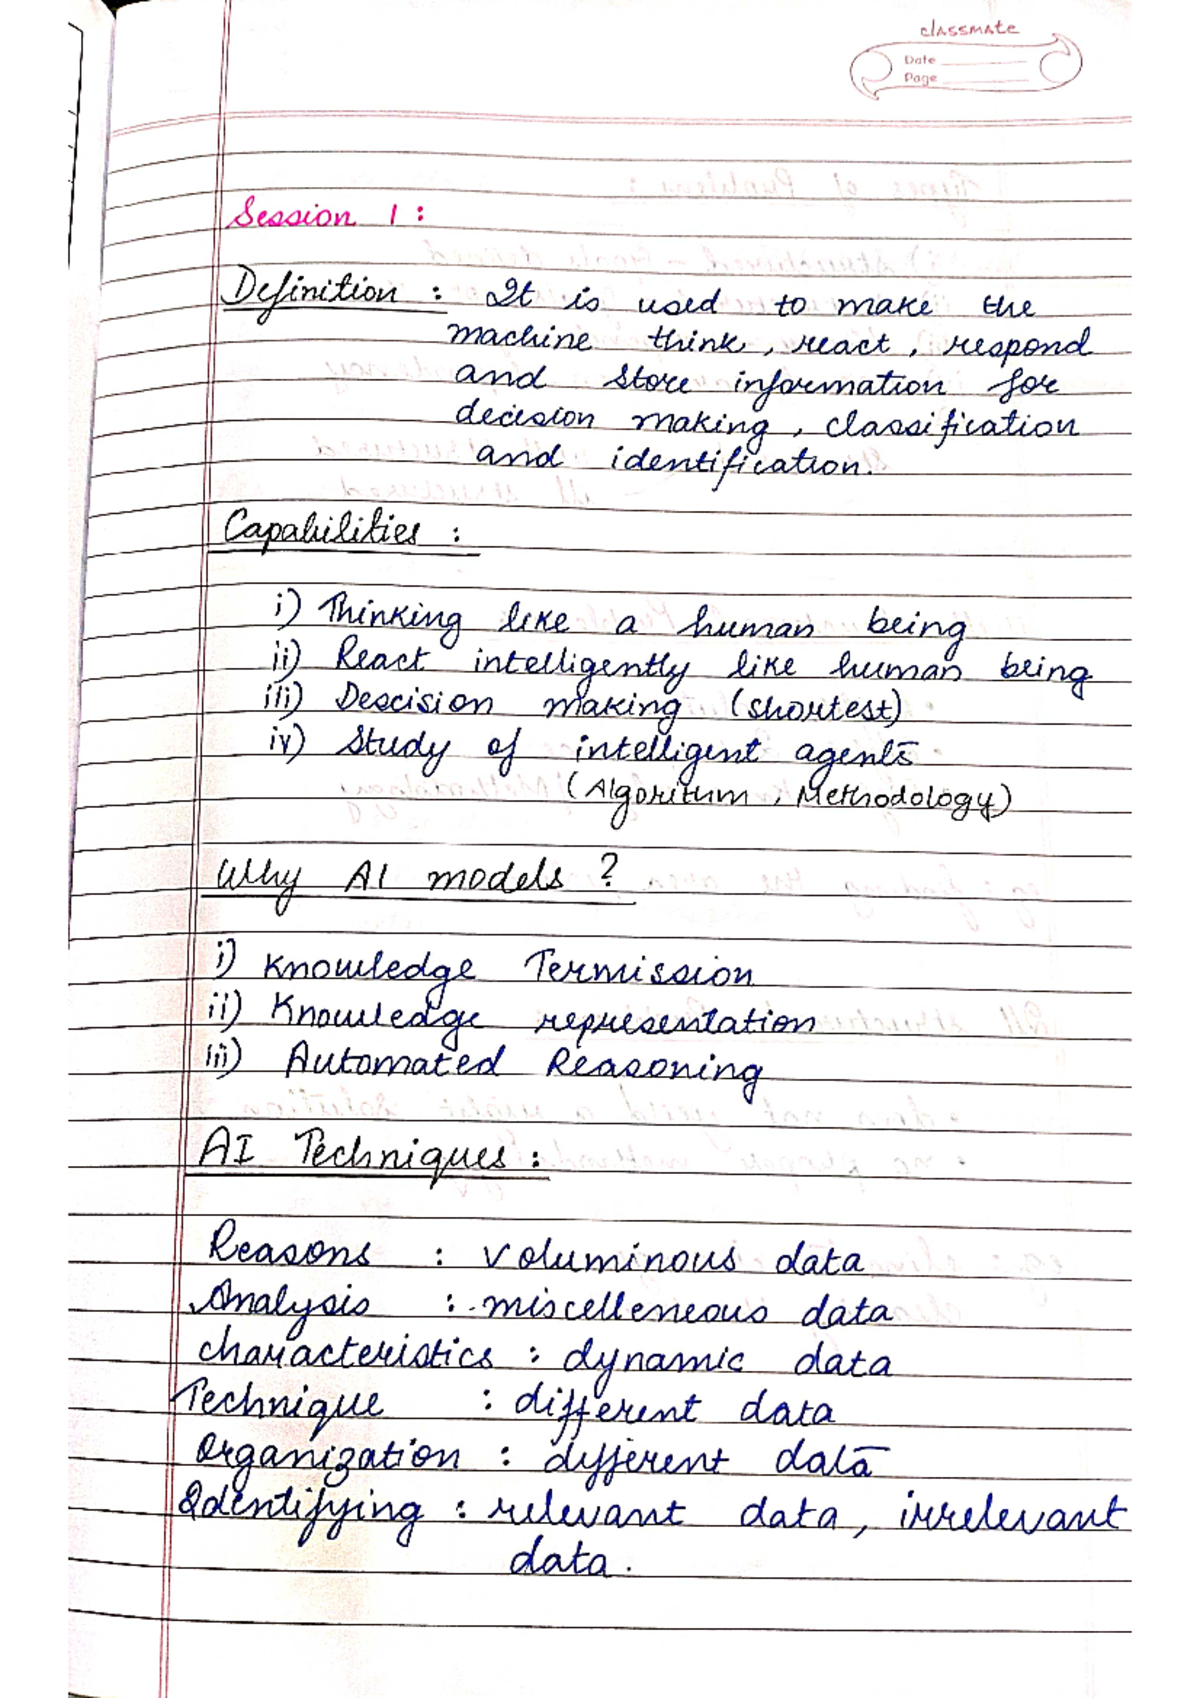 classmate
Date
Page
Session 1 :
Definition : It is used to make the
machine think, react, respond
and store information for
decision making, classification
and identification.
Capabilities :
i) Thinking like a human being
ii) React intelligently like human being
iii) Descision making (shortest)
iv) Study of intelligent agents
(Algoritum, Methodology)
Why AI models ?
i) Knowledge Termission
ii) Knowledge representation
iii) Automated Reasoning
AI Techniques :
Reasons : voluminous data
Analysis : miscelleneous data
characteristics : dynamic data
Technique : different data
Organization : different data
Identifying : relevant data, irrelevant
data.